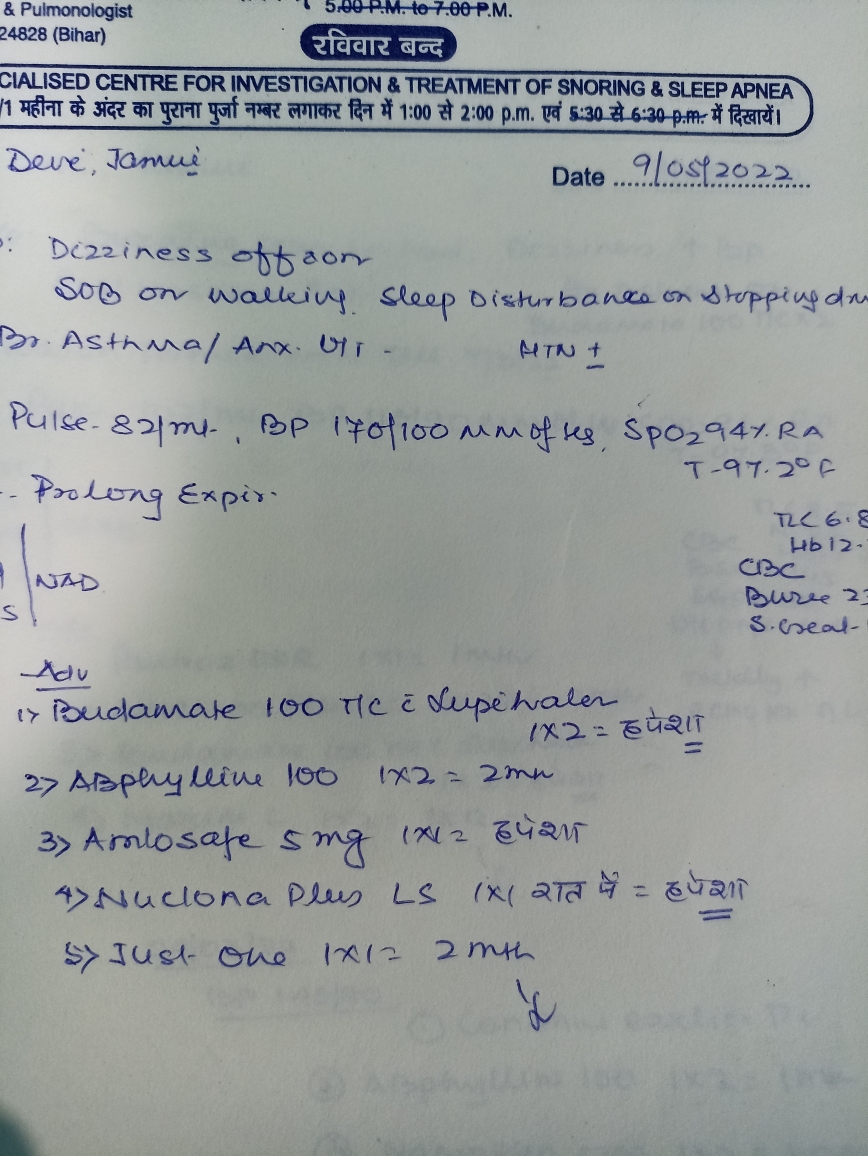 & Pulmonologist
5.00 P.M. to 7.00 P.M.
24828 (Bihar)
रविवार बन्द
CIALISED CENTRE FOR INVESTIGATION & TREATMENT OF SNORING & SLEEP APNEA
/1 महीना के अंदर का पुराना पुर्जा नम्बर लगाकर दिन में 1:00 से 2:00 p.m. एवं 5:30 से 6:30 p.m. में दिखायें।
Devi, Jamui
Date 9/05/2022
: Dizziness off & on
SOB on walking. Sleep Disturbance on stopping
Br. Asthma/ Anx. HTN +
Pulse- 82/mt, BP 170/100 mm of Hg, SpO2 94% RA
T-97.2°F
- Prolong Expir.
TLC 6.8
Hb 12.
NAD
CBC
S
S. Creat-
Adv
1> Budamate 100 T/C c̄ Lupihaler
1x2 = हमेशा
2> ABphylline 100 1x2 = 2mn
3> Amlosafe 5 mg 1x1= हमेशा
4> Nuclona Plus LS 1x1 रात में = हमेशा
5> Just one 1x1= 2 mth